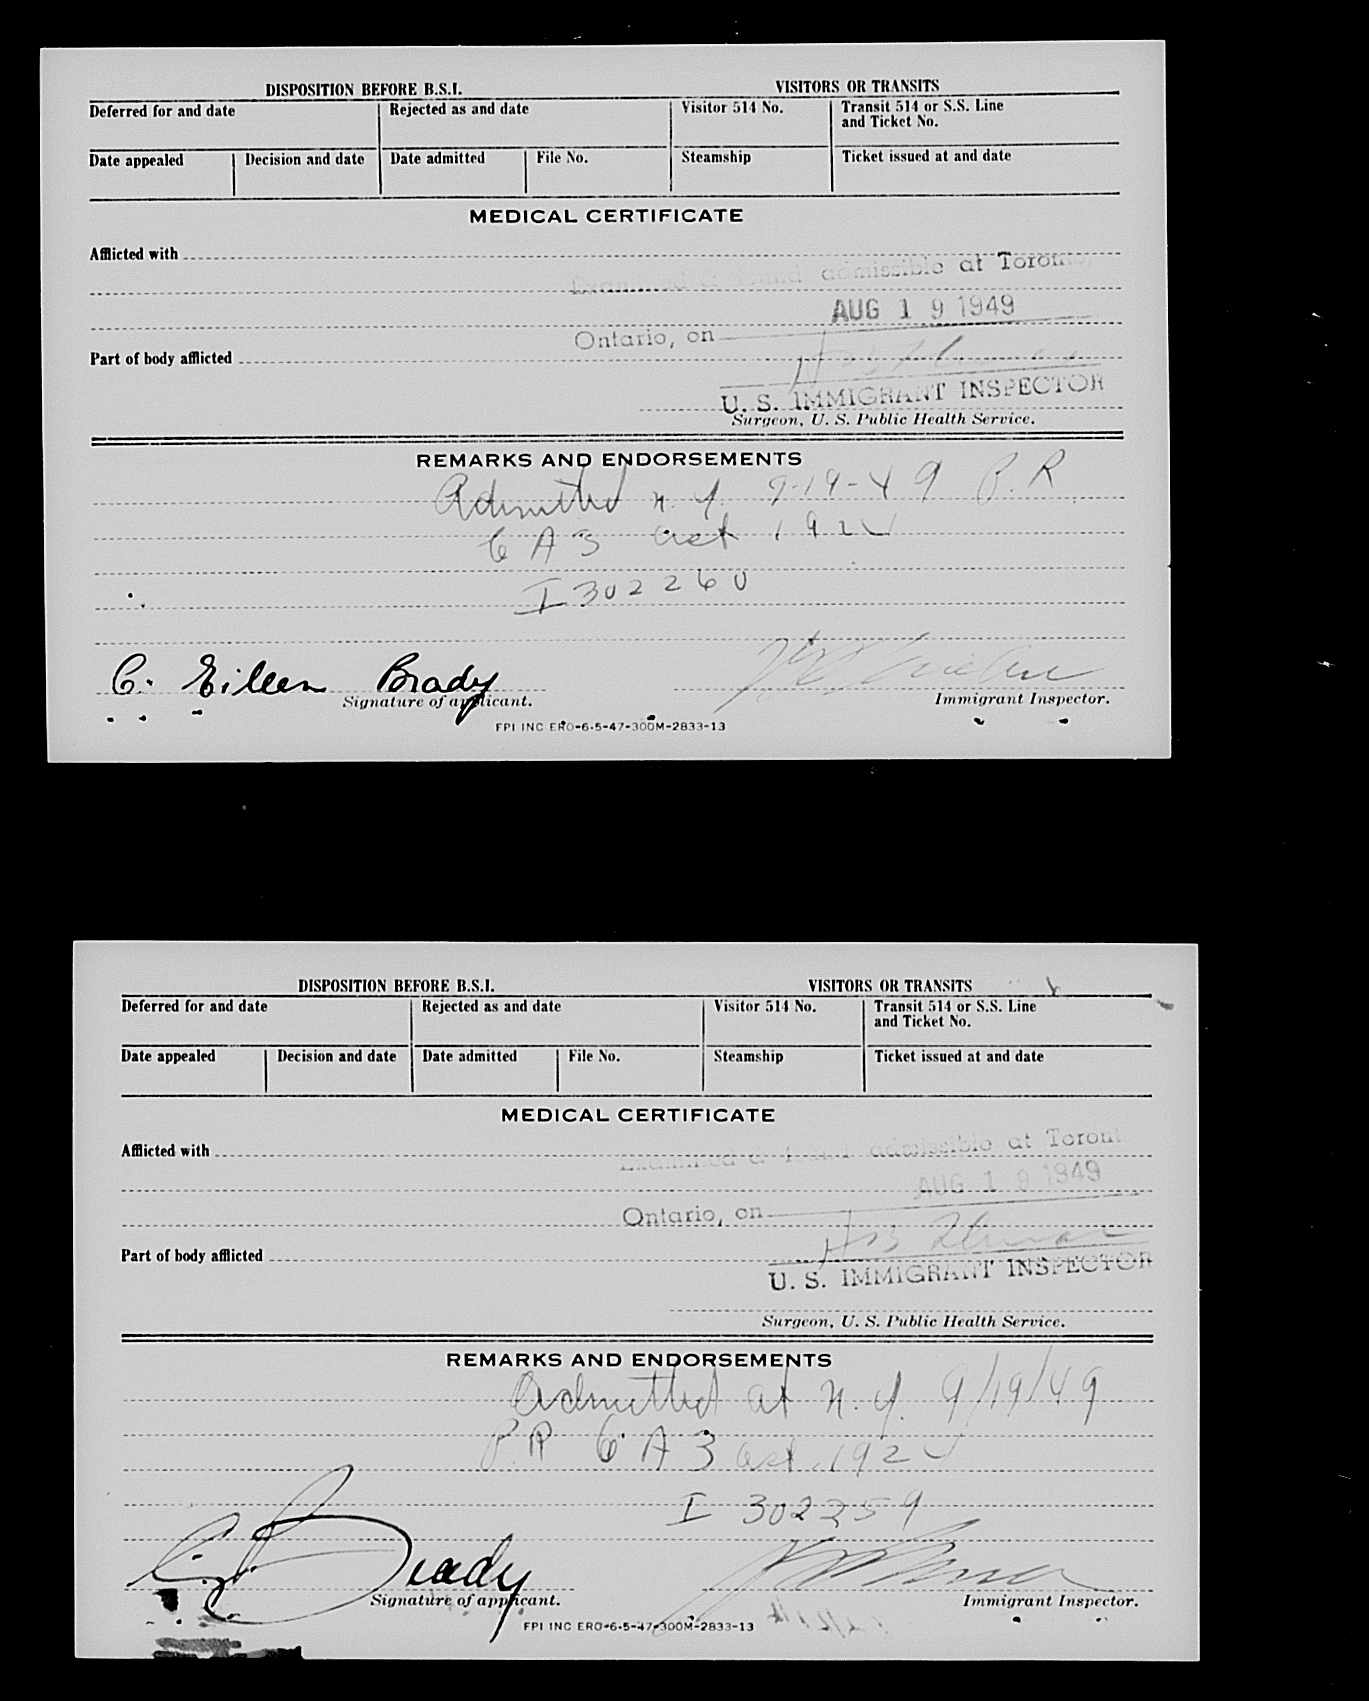 DISPOSITION BEFORE B.S.I. VISITORS OR TRANSITS
Deferred for and date Rejected as and date Visitor 514 No. Transit 514 or S.S. Line
and Ticket No.
Date appealed Decision and date Date admitted File No. Steamship Ticket issued at and date
MEDICAL CERTIFICATE
Afflicted with
admissible at Toronto,
AUG 19 1949
Ontario, on
Part of body afflicted
U. S. IMMIGRANT INSPECTOR
Surgeon, U. S. Public Health Service.
REMARKS AND ENDORSEMENTS
Admitted n.y. 9-19-49 P.R.
6 A 3 act 1924
I 302260
C. Eileen Brady
Signature of applicant. Immigrant Inspector.
FPI INC ERO-6-5-47-300M-2833-13
DISPOSITION BEFORE B.S.I. VISITORS OR TRANSITS
Deferred for and date Rejected as and date Visitor 514 No. Transit 514 or S.S. Line
and Ticket No.
Date appealed Decision and date Date admitted File No. Steamship Ticket issued at and date
MEDICAL CERTIFICATE
Afflicted with
Examined admissible at Toront
AUG 19 1949
Ontario, on
Part of body afflicted
U. S. IMMIGRANT INSPECTOR
Surgeon, U. S. Public Health Service.
REMARKS AND ENDORSEMENTS
Admitted at n.y. 9/19/49
P.R 6 A 3 act 1924
I 302259
Brady
Signature of applicant. Immigrant Inspector.
FPI INC ERO-6-5-47-300M-2833-13